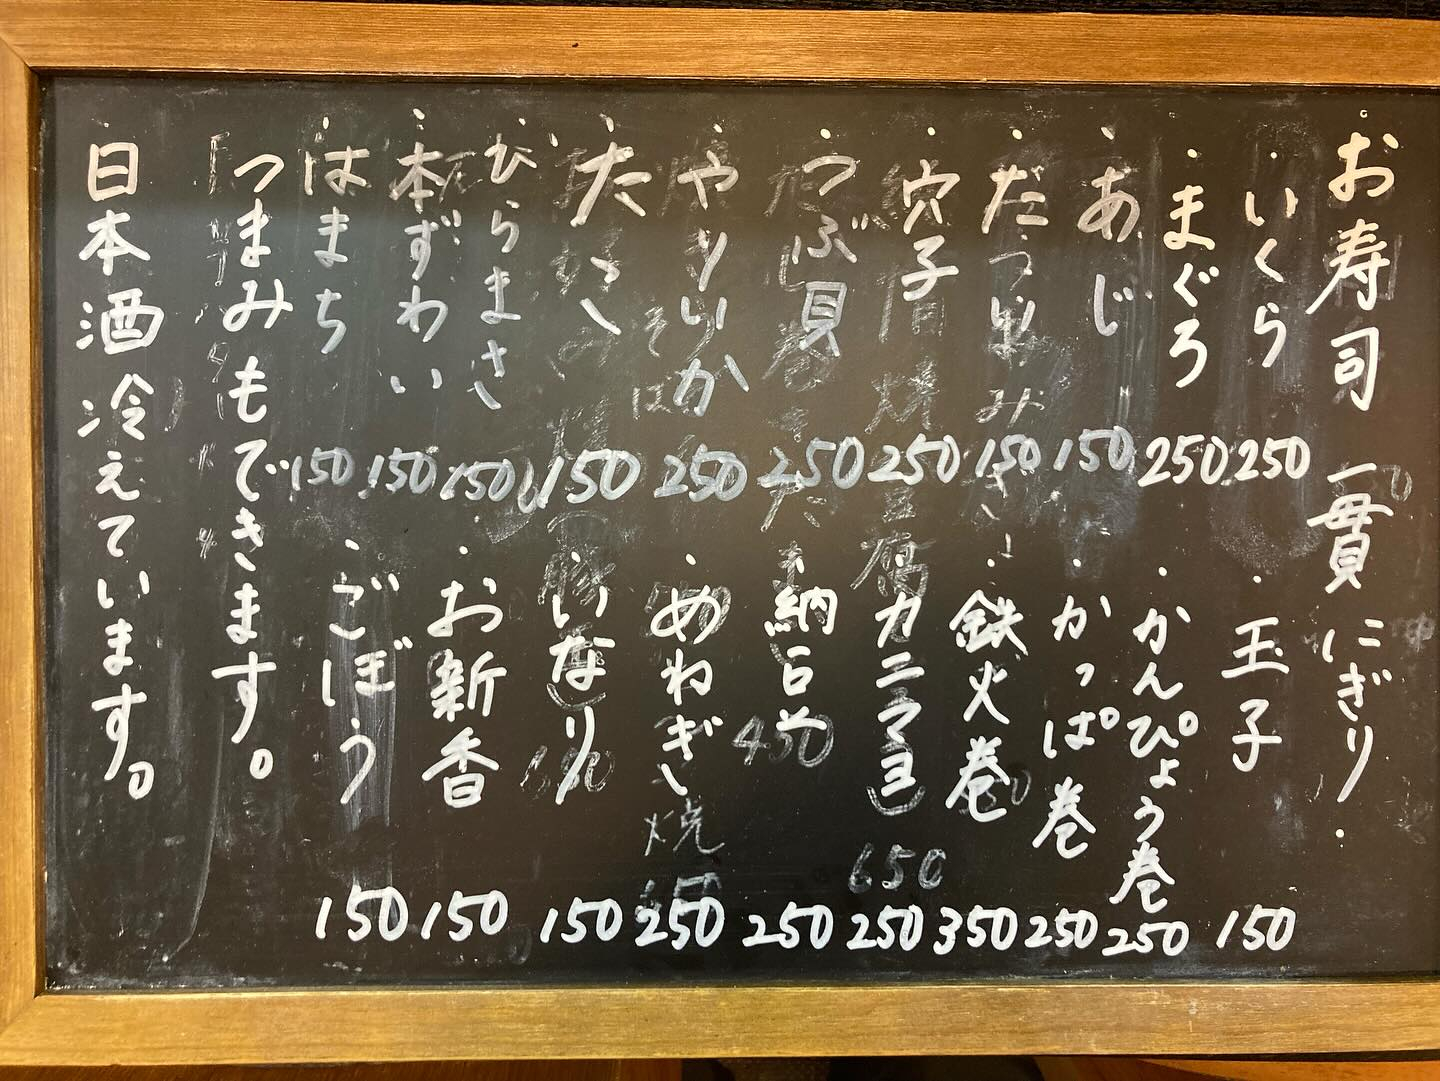 お寿司 一貫 にぎり.
・いくら 250
・まぐろ 250
・あじ 150
・だし巻み 150
・穴子 250
・つぶ貝 250
・やりいか 250
・たこ 150
・ひらまさ 150
・本ずわい 150
・はまち 150
・玉子 150
・かんぴょう巻 250
・かっぱ巻 250
・鉄火巻 350
・カニマヨ 250
・納豆 250
・めねぎ 250
・いなり 150
・お新香 150
・ごぼう 150
つまみもできます。
日本酒冷えています。